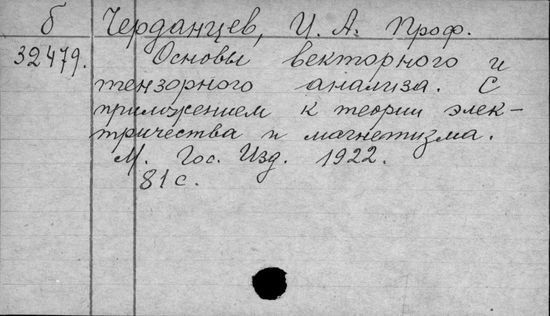 б Черданцев, И. А. Проф.
32479. Основы векторного и
тензорного анализа. С
приложением к теории элек-
тричества и магнетизма.
М. Гос. Изд. 1922.
81 с.